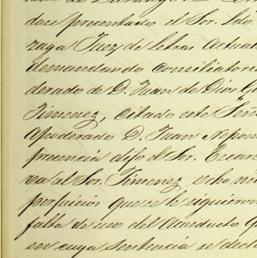 duce presentado el Sor. Ldo.
zaga Juez de Letras Actua
demandando Conciliatori
derado de D. Juan de Dios G
Jimenez, citado este Señ
Apoderado D. Juan Nepom
presencia dijo el Sor. Escan
va al Sor. Jimenez ocho mi
perjuicios que se le siguieron
falta de uso del Acueducto q
en cuya Sentencia se decla